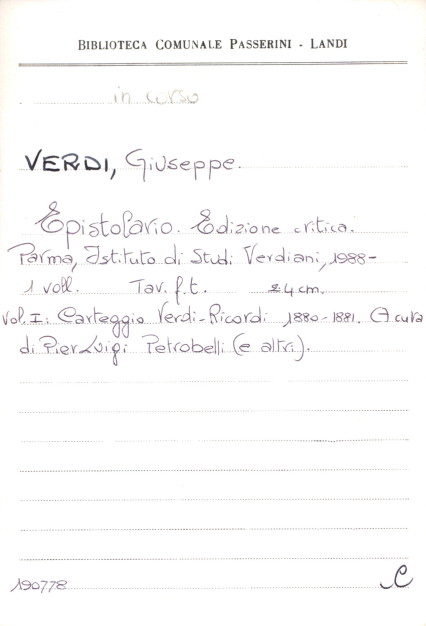 BIBLIOTECA COMUNALE PASSERINI - LANDI
in corso
VERDI, Giuseppe.
Epistolario. Edizione critica.
Parma, Istituto di Studi Verdiani, 1988-
1 voll. Tav. f.t. 24 cm.
Vol. I: Carteggio Verdi-Ricordi 1880-1881. A cura
di Pier Luigi Petrobelli (e altri).
190778 C